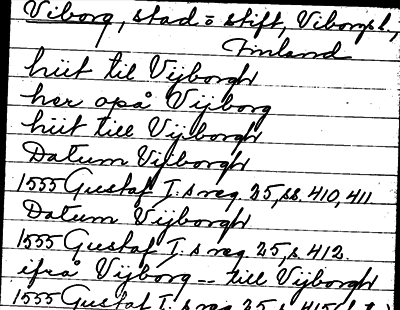 Viborg, stad o stift, Viborgsl.,
Finland
hiit til Vijborgh
her opå Vijborg
hiit till Vijborgh
Datum Vijborgh
1555 Gustaf I. s reg. 25, ss. 410, 411
Datum Vijborgh
1555 Gustaf I. s reg. 25, s. 412.
ifrå Vijborg -- till Vijborgh
1555 Gustaf I. s reg. 25, s. 415